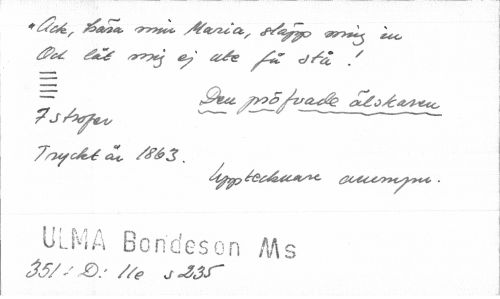 "Ack, kära min Maria, släpp mig in
Och låt mig ej ute få stå!
Den pröfvade älskaren
7 strofer
Tryckt år 1863.
Upptecknare anonym.
ULMA Bondeson Ms
351: D: 11e s 235